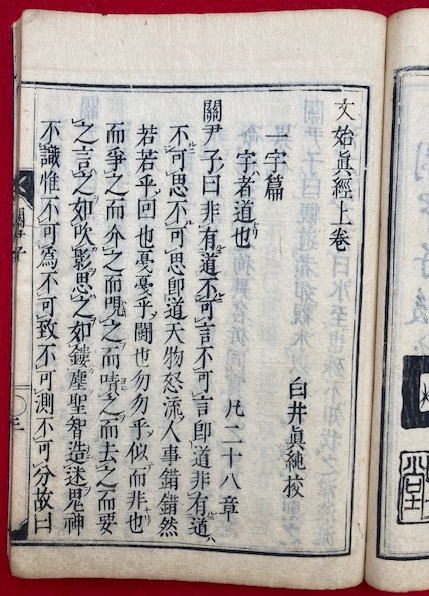 文始眞經上卷
臼井眞純校
一宇篇
宇者道也 凡二十八章
關尹子曰非有道不可言不可言卽道非有道
不可思不可思卽道天物怒流人事錯錯然
若若乎回也戞戞乎鬪也勿勿乎似而非也
而爭之而介之而哯之而嘖之而去之而要
之言之如吹影思之如鏤塵聖智造迷鬼神
不識惟不可爲不可致不可測不可分故曰
關尹子
堂